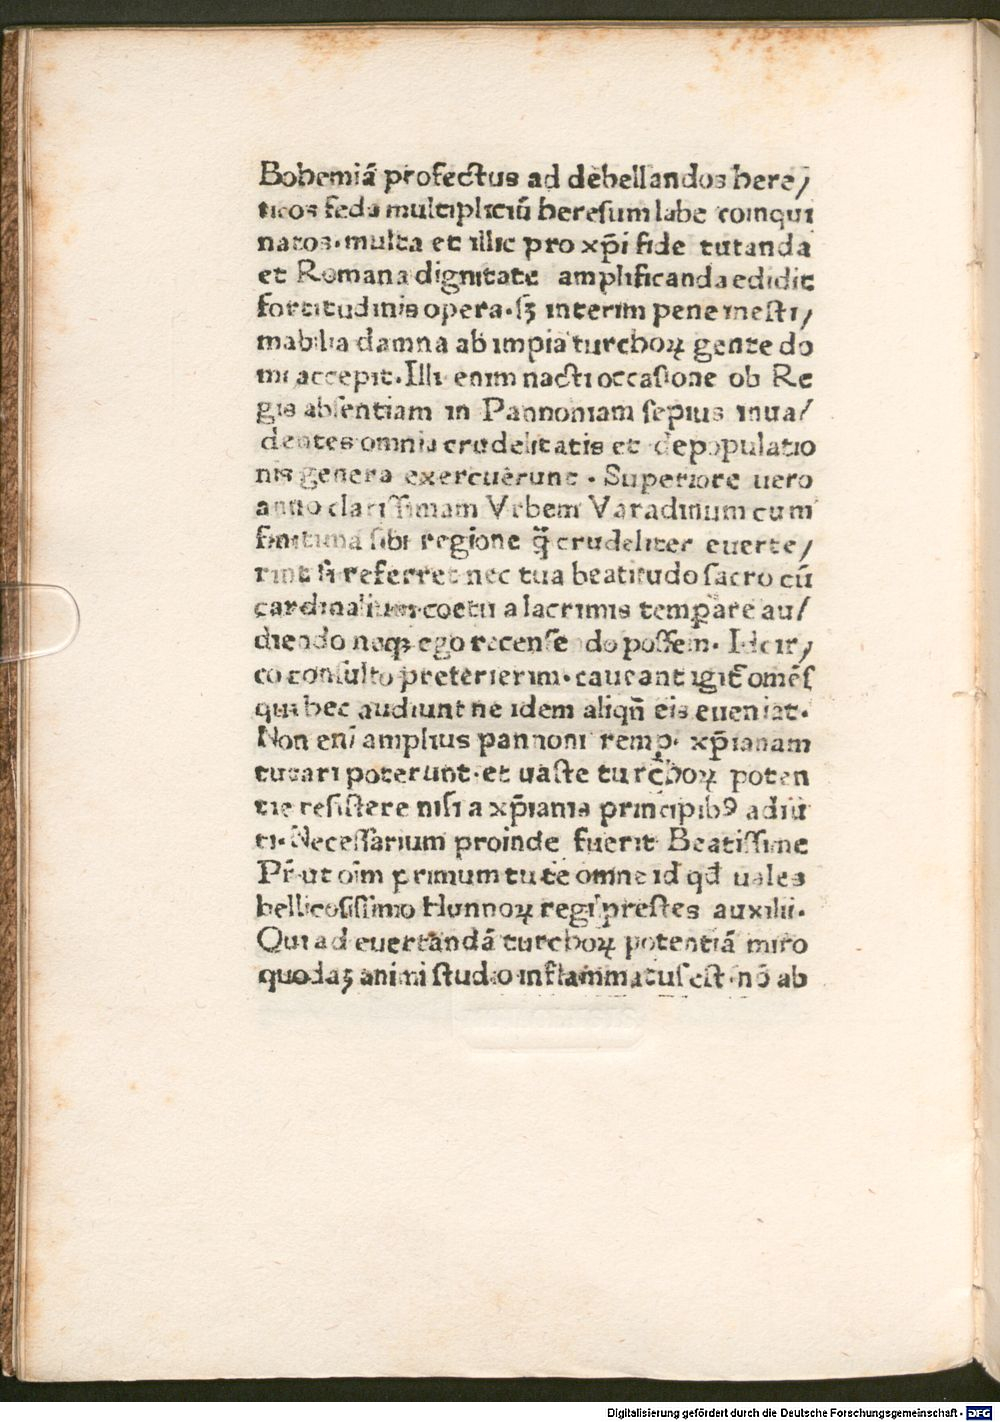 Bohemiā profectus ad debellandos here/
ticos feda multipliciū heresum labe coinqui
natos·multa et illic pro xp̄i fide tutanda
et Romana dignitate amplificanda edidit
fortitudinis opera·sꝫ interim pene inesti/
mabilia damna ab impia turchoꝝ gente do
mi accepit·Illi enim nacti occasione ob Re
gis absentiam in Pannoniam sepius inua/
dentes omnia crudelitatis et depopulatio
nis genera exercuerunt·Superiore uero
anno clarissimam Vrbem Varadinum cum
finitima sibi regione q̄ꝫ crudeliter euerte/
rint si referret nec tua beatitudo sacro cū
cardinalium coetu a lacrimis temꝑare au/
diendo neqꝫ ego recensendo possem·Idcir/
co consulto preterierim·caueant igit̄ omēs
qui hec audiunt ne idem aliqn̄ eis eueniat·
Non eni amplius pannoni remp· xp̄ianam
tutari poterunt·et uaste turchoꝝ poten
tie resistere nisi a xp̄ianis principibꝰ adiu
ti·Necessarium proinde fuerit Beatissime
Pr̄·ut oīm primum tu te omne id qd̄ uales
bellicosissimo Hunnoꝝ regi prestes auxilii·
Qui ad euertandā turchoꝝ potentiā miro
quodaꝫ animi studio inflammatus est·nō ab
Digitalisierung gefördert durch die Deutsche Forschungsgemeinschaft - DFG